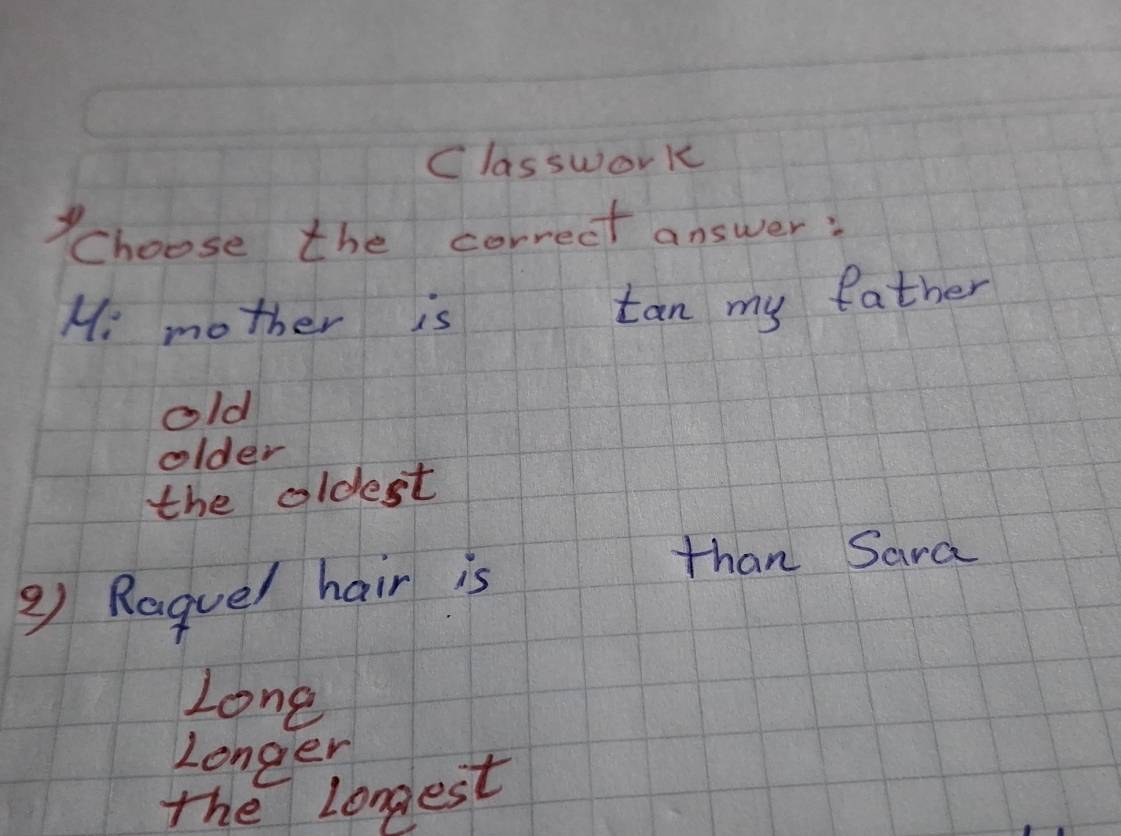 Classwork
Choose the correct answer:
Mi mother is tan my father
old
older
the oldest
2) Raquel hair is than Sara
Long
Longer
the Longest